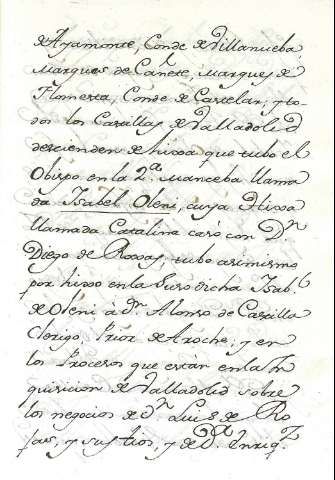 de Ayamonte, Conde de Villanueba,
Marques de Cañete, Marques de
Flomesta, Conde de Castelar, y to-
dos los Casallas de Valladolid
descienden de hixa que tubo el
Obispo en la 2ª Manceba llama
da Isabel Oleni, cuya Hixa
llamada Catalina casó con Dn
Diego de Roxas, tubo asimismo
por hixo en la suso dicha Isabl
de Oleni à Dn. Alonso de Castilla
Clerigo, Prior de Aroche, y en
los Procesos que estan en la In
quisicion de Valladolid sobre
los negocios de Dn Luis de Ro
jas, y sus tios, y de Dª Enriqz